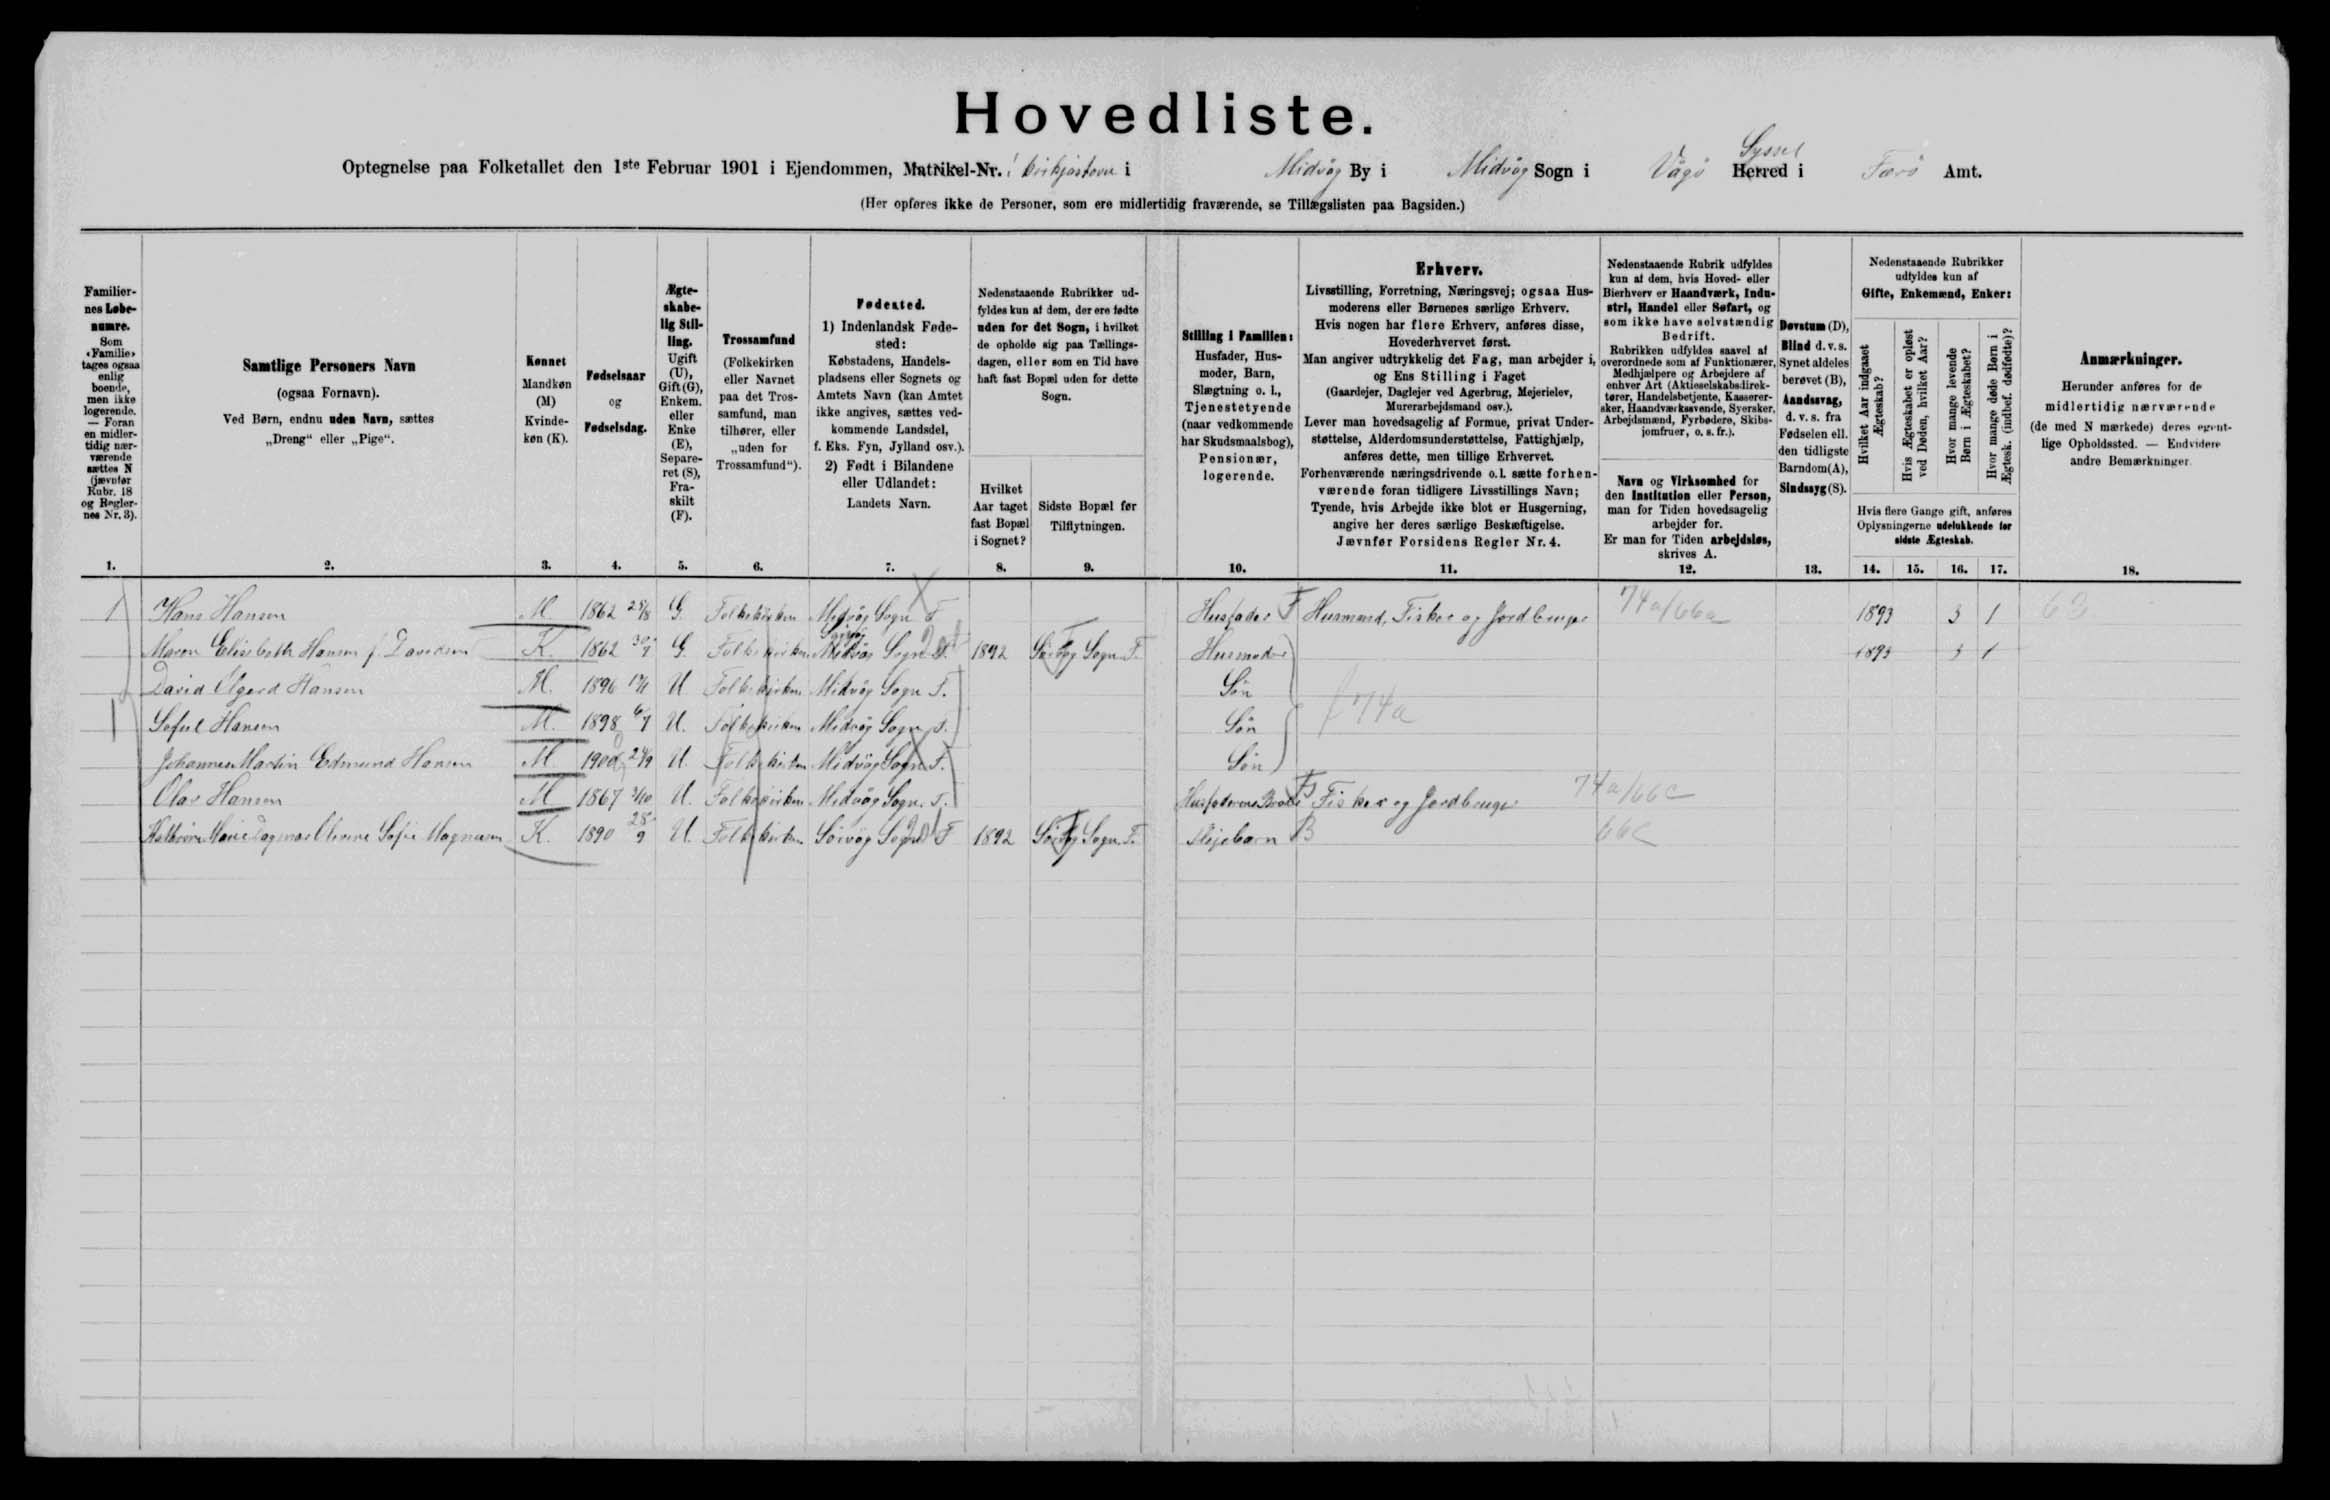 Hovedliste.
Optegnelse paa Folketallet den 1ste Februar 1901 i Ejendommen, Matrikel-Nr. i Kirkjustovu i Midvåg By i Midvåg Sogn i Vågø Herred Syssel i Færø Amt.
(Her opføres ikke de Personer, som ere midlertidig fraværende, se Tillægslisten paa Bagsiden.)
Familiernes Løbenumre. Som «Familie» tages ogsaa enlig boende, men ikke logerende. — Foran en midlertidig nærværende sættes N (jævnfør Rubr. 18 og Reglernes Nr. 3).
Samtlige Personers Navn (ogsaa Fornavn). Ved Børn, endnu uden Navn, sættes „Dreng“ eller „Pige“.
Kønnet Mandkøn (M) Kvindekøn (K).
Fødselsaar og Fødselsdag.
Ægteskabelig Stilling. Ugift (U), Gift (G), Enkem. eller Enke (E), Separeret (S), Fraskilt (F).
Trossamfund (Folkekirken eller Navnet paa det Trossamfund, man tilhører, eller „uden for Trossamfund“).
Fødested. 1) Indenlandsk Fødested: Købstadens, Handelspladsens eller Sognets og Amtets Navn (kan Amtet ikke angives, sættes vedkommende Landsdel, f. Eks. Fyn, Jylland osv.). 2) Født i Bilandene eller Udlandet: Landets Navn.
Nedenstaaende Rubrikker udfyldes kun af dem, der ere fødte uden for det Sogn, i hvilket de opholde sig paa Tællingsdagen, eller som en Tid have haft fast Bopæl uden for dette Sogn.
Hvilket Aar taget fast Bopæl i Sognet?
Sidste Bopæl før Tilflytningen.
Stilling i Familien: Husfader, Husmoder, Barn, Slægtning o. l., Tjenestetyende (naar vedkommende har Skudsmaalsbog), Pensionær, logerende.
Erhverv.
Livsstilling, Forretning, Næringsvej; ogsaa Husmoderens eller Børnenes særlige Erhverv.
Hvis nogen har flere Erhverv, anføres disse, Hovederhvervet først.
Man angiver udtrykkelig det Fag, man arbejder i, og Ens Stilling i Faget
(Gaardejer, Daglejer ved Agerbrug, Mejerielev, Murerarbejdsmand osv.).
Lever man hovedsagelig af Formue, privat Understøttelse, Alderdomsunderstøttelse, Fattighjælp, anføres dette, men tillige Erhvervet.
Forhenværende næringsdrivende o. l. sætte forhenværende foran tidligere Livsstillings Navn;
Tyende, hvis Arbejde ikke blot er Husgerning, angive her deres særlige Beskæftigelse.
Jævnfør Forsidens Regler Nr. 4.
Nedenstaaende Rubrik udfyldes kun af dem, hvis Hoved- eller Bierhverv er Haandværk, Industri, Handel eller Søfart, og som ikke have selvstændig Bedrift.
Rubrikken udfyldes saavel af overordnede som af Funktionærer, Medhjælpere og Arbejdere af enhver Art (Aktieselskabsdirektører, Handelsbetjente, Kassererersker, Haandværkssvende, Syersker, Arbejdsmænd, Fyrbødere, Skibsjomfruer, o. s. fr.).
Navn og Virksomhed for den Institution eller Person, man for Tiden hovedsagelig arbejder for.
Er man for Tiden arbejdsløs, skrives A.
Døvstum (D), Blind d. v. s. Synet aldeles berøvet (B), Aandssvag, d. v. s. fra Fødselen ell. den tidligste Barndom (A), Sindssyg (S).
Nedenstaaende Rubrikker udfyldes kun af Gifte, Enkemænd, Enker:
Hvilket Aar indgaaet Ægteskab?
Hvis Ægteskabet er opløst ved Døden, hvilket Aar?
Hvor mange levende Børn i Ægteskabet?
Hvor mange døde Børn i Ægtesk. (indbef. dødfødte)?
Hvis flere Gange gift, anføres Oplysningerne udelukkende for sidste Ægteskab.
Anmærkninger. Herunder anføres for de midlertidig nærværende (de med N mærkede) deres egentlige Opholdssted. — Endvidere andre Bemærkninger.
1. 2. 3. 4. 5. 6. 7. 8. 9. 10. 11. 12. 13. 14. 15. 16. 17. 18.
1 Hans Hansen M. 1862 25/8 G. Folkekirken Midvåg Sogn F Husfader F Husmand, Fisker og Jordbruger 74a/66a 1893 3 1 63
Maren Elisabeth Hansen f. Davidsen K. 1862 30/7 G. Folkekirken Sørvåg Midvåg Sogn F. 1892 Sørvåg Sogn F. Husmoder 1893 3 1
David Elgerd Hansen M. 1896 U. Folkekirken Midvåg Sogn F. Søn 74a
Soful Hansen M. 1898 6/7 U. Folkekirken Midvåg Sogn F. Søn
Johannes Martin Edmund Hansen M 1900 24/9 U. Folkekirken Midvåg Sogn F. Søn
Olav Hansen M 1867 3/10 U. Folkekirken Midvåg Sogn. F. Husfaderens Broder Fisker og Jordbruger 74a/66c
Kathrine Marie Dagmar Olevine Sofie Magnusen K. 1890 28/9 U. Folkekirken Sørvåg Sogn F 1892 Sørvåg Sogn F. Plejebarn B 66c